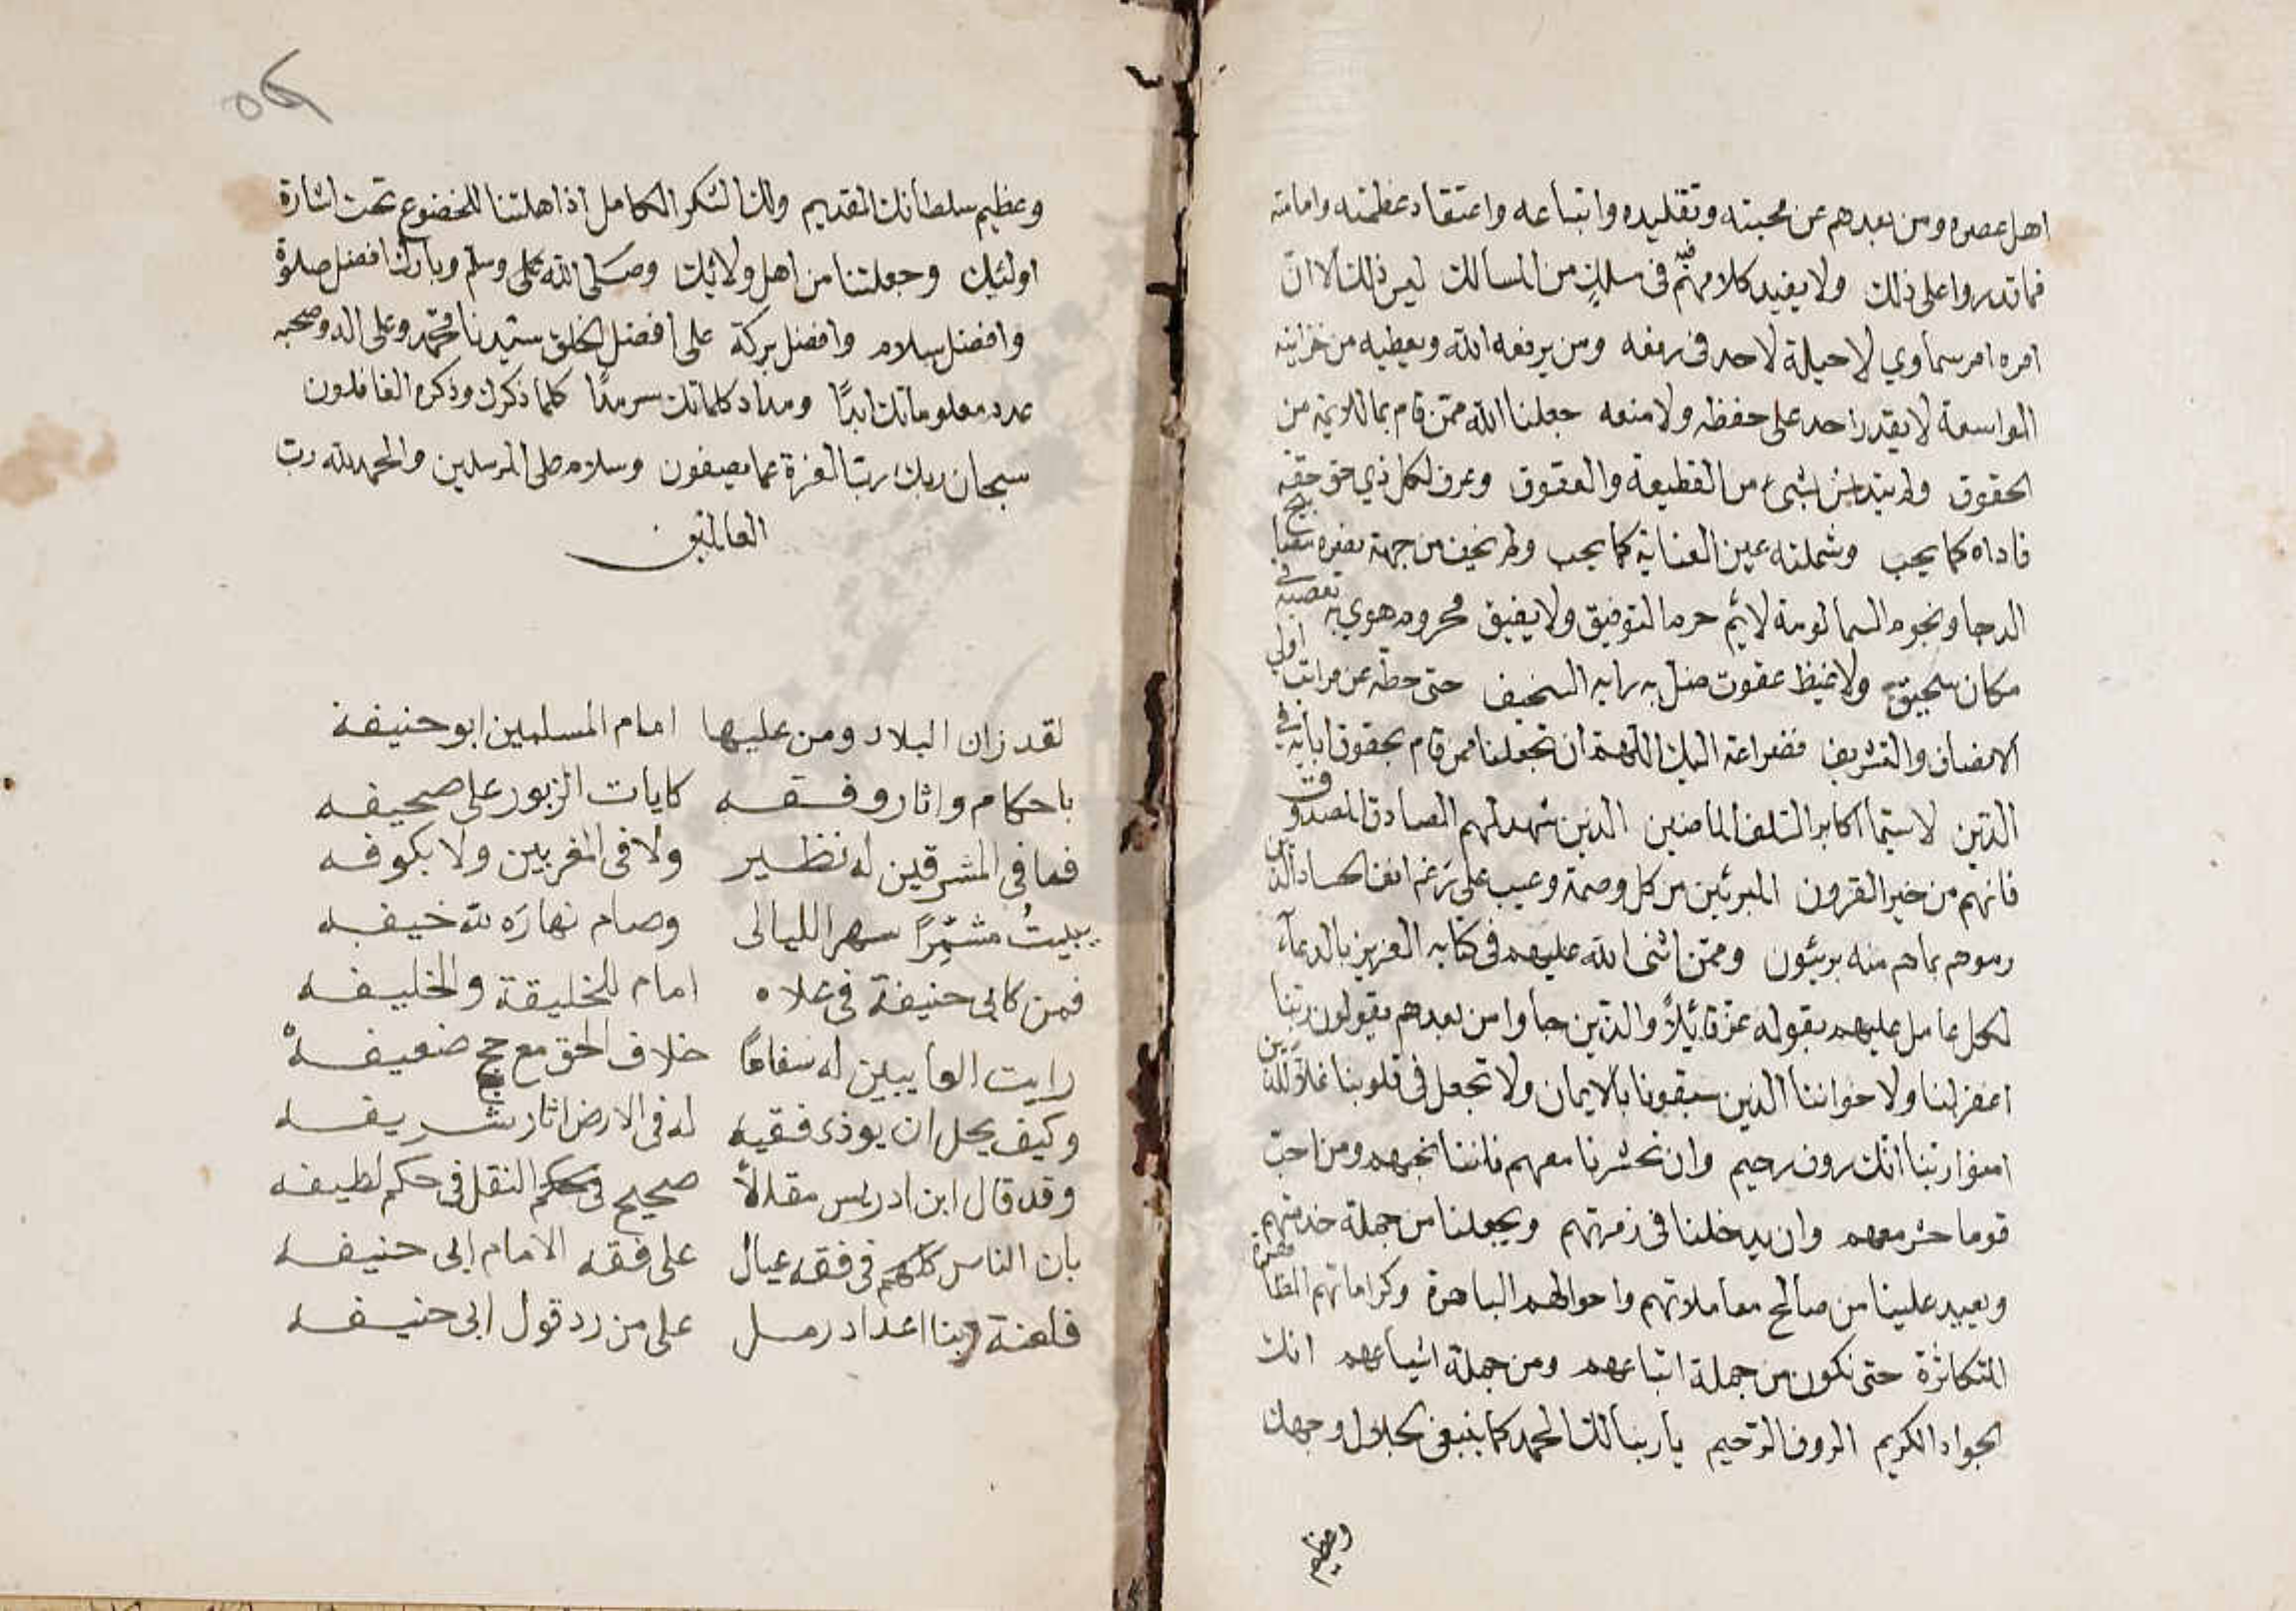 اهل عصره ومن بعدهم عن محبته وتقليده واتباعه واعتقاد عظمته وامامته
فما قدروا على ذلك ولا يفيد كلامهم فيه فى سلك من المسالك ليس ذلك الا ان
امره امر سماوي لا حيلة لاحد فى رفعه ومن يرفعه الله ويعطيه من خزاينه
الواسعة لا يقدر احد على حفظه ولا منعه جعلنا الله ممن قام بما لائمته من
الحقوق ولم يتدنس بشىء من القطيعة والعقوق وعرف لكل ذي حق حقه
فاداه كما يجب وشملته عين العناية كما يجب ولم نخف من جهة
الدجا ونجوم السما لومة لائم حرم التوفيق ولا يفيق محروم هوي به تعصبه فى
مكان سحيق ولا غيظ عقوت ضل به رايه السخيف حتى حطه عن مراتب اولى
الانصاف والتشريف فضراعة اليك اللهم ان تجعلنا ممن قام بحقوق ابايه فى
الدين لا سيما اكابر السلف الماضين الذين شهد لهم الصادق المصدوق
فانهم من خير القرون المبرئين من كل وصمة وعيب على رغم انف الحساد الذين
رموهم بما هم منه بريئون وممن اثنى الله عليهم فى كتابه العزيز بالدعاء
لكل عامل عليهم بقوله عز قائلا والذين جاوا من بعدهم يقولون ربنا
اغفر لنا ولاخواننا الذين سبقونا بالايمان ولا تجعل فى قلوبنا غلا للذين
امنوا ربنا انك روف رحيم وان تحشرنا معهم فاننا نحبهم ومن احب
قوما حشر معهم وان يدخلنا فى زمرتهم ويجعلنا من جملة خدمتهم
ويعيد علينا من صالح معاملاتهم واحوالهم الباهرة وكراماتهم الظاهرة
المتكاثرة حتى نكون من جملة اتباعهم ومن جملة اشياعهم انك
الجواد الكريم الروف الرحيم يا ربنا لك الحمد كما ينبغى لجلال وجهك
وعظيم
وعظيم سلطانك القديم ولك الشكر الكامل اذ اهلتنا للخضوع تحت اشارة
اولئيك وجعلتنا من اهل ولائك وصلى الله على وسلم وبارك افضل صلوة
وافضل سلام وافضل بركة على افضل الخلق سيدنا محمد وعلى اله وصحبه
عدد معلوماتك ابدًا ومداد كلماتك سرمدًا كلما ذكرك وذكره الغافلون
سبحان ربك رب العزة عما يصفون وسلام على المرسلين والحمد لله رب
العالمين
لقد زان البلاد ومن عليها امام المسلمين ابو حنيفة
باحكام واثار وفقه كايات الزبور على صحيفه
فما فى المشرقين له نظير ولا فى المغربين ولا بكوفه
يبيتُ مشمّرًا سهر الليالى وصام نهارَه لله خيفه
فمن كابى حنيفة فى علاه امام للخليقة والخليفه
رايت العايبين له سفاها خلاف الحق مع حجج ضعيفه
وكيف يحل ان يوذى فقيه له فى الارض اثار شريفه
وقد قال ابن ادريس مقالًا صحيح النقل فى حكم لطيفه
بان الناس كلهم فى فقه عيال على فقه الامام ابى حنيفه
فلعنة ربنا اعداد رمل على من رد قول ابى حنيفه